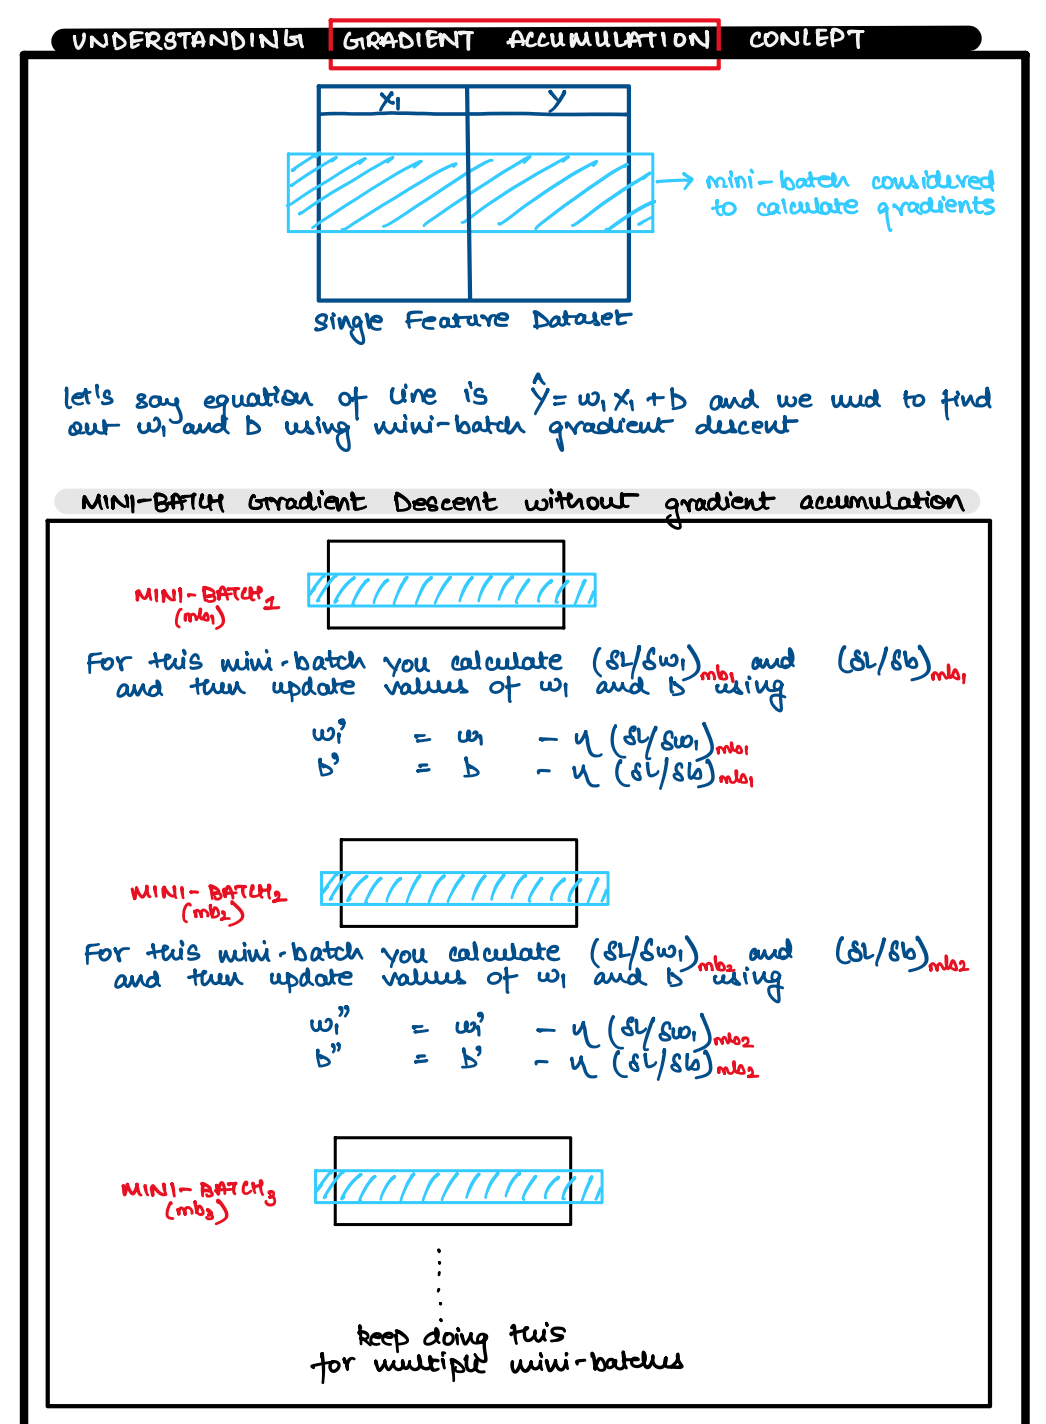 UNDERSTANDING GRADIENT ACCUMULATION CONCEPT
X₁ Y
mini-batch considered
to calculate gradients
Single Feature Dataset
let's say equation of line is Ŷ = w₁ X₁ + b and we need to find
out w₁ and b using mini-batch gradient descent
MINI-BATCH Gradient Descent without gradient accumulation
MINI-BATCH₁
(mb₁)
For this mini-batch you calculate (δL/δw₁)mb₁ and (δL/δb)mb₁
and then update values of w₁ and b using
w₁' = w₁ - η (δL/δw₁)mb₁
b' = b - η (δL/δb)mb₁
MINI-BATCH₂
(mb₂)
For this mini-batch you calculate (δL/δw₁)mb₂ and (δL/δb)mb₂
and then update values of w₁ and b using
w₁'' = w₁' - η (δL/δw₁)mb₂
b'' = b' - η (δL/δb)mb₂
MINI-BATCH₃
(mb₃)
keep doing this
for multiple mini-batches